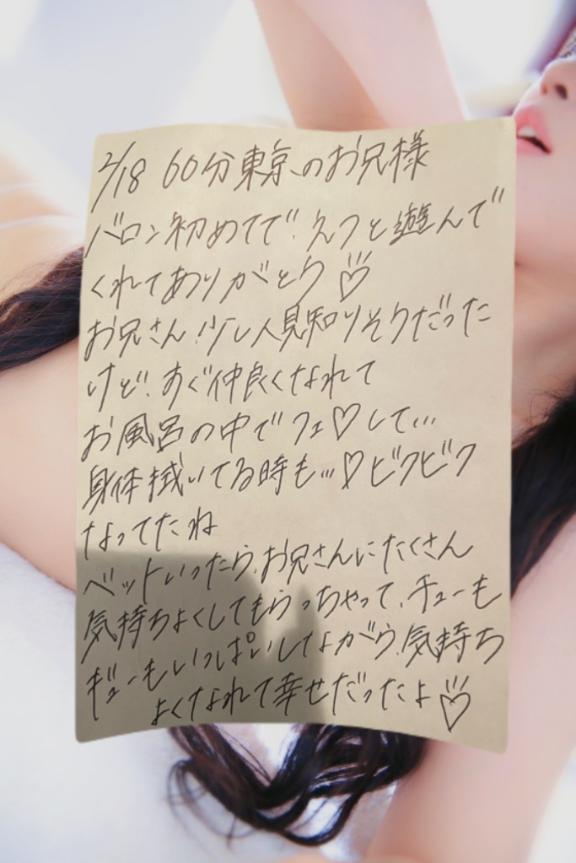 2/18 60分東京のお兄様
バロン初めてで、えフと遊んで
くれてありがとう♡
お兄さん、少し人見知りそうだった
けど、すぐ仲良くなれて
お風呂の中でフェ♡して…
身体拭いてる時も…♡ビクビク
なってたね
ベットいったら、お兄さんにたくさん
気持ちよくしてもらっちゃって、チューも
ギューもいっぱいしながら、気持ち
よくなれて幸せだったよ♡